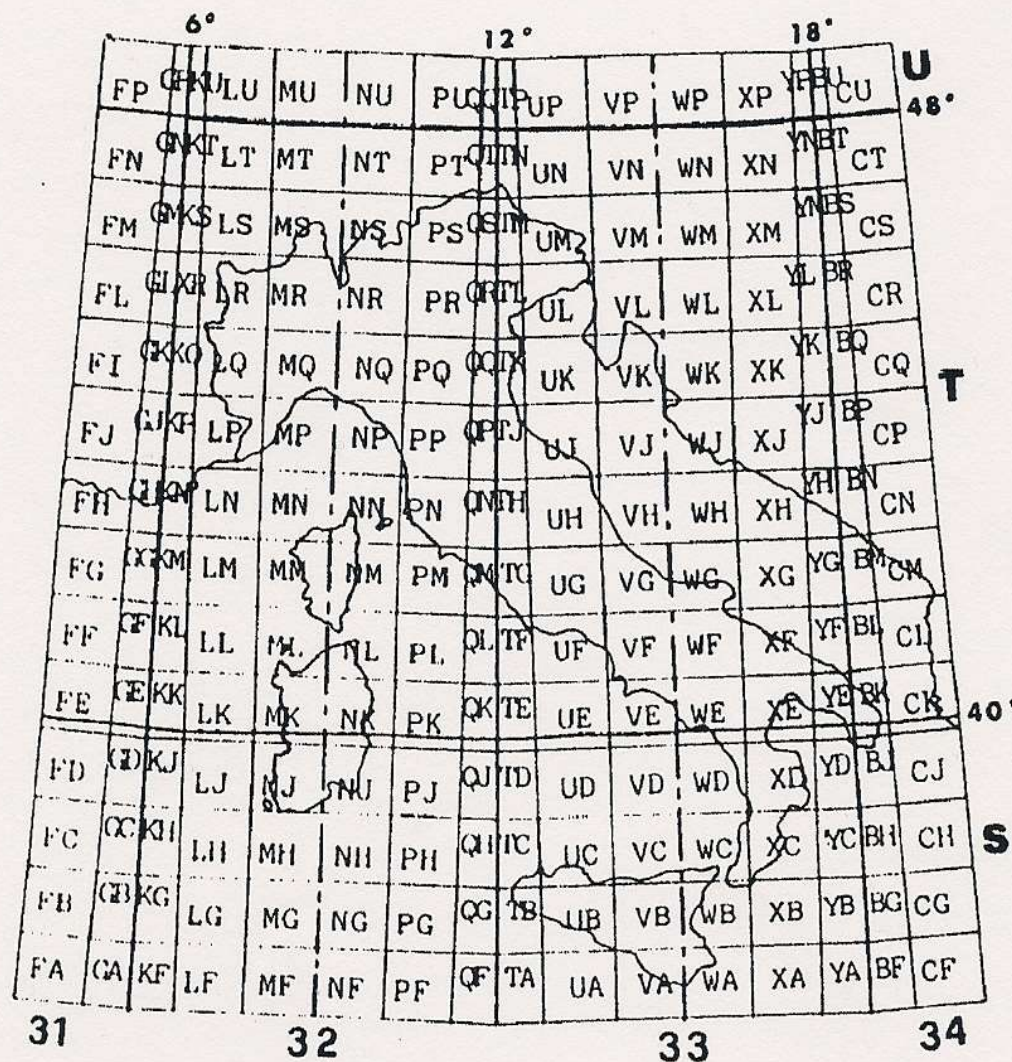 6° 12° 18°
FP LU MU NU PU UP VP WP XP CU U
48°
FN LT MT NT PT UN VN WN XN CT
FM LS MS NS PS UM VM WM XM CS
FL LR MR NR PR UL VL WL XL YL BR CR
FI LQ MQ NQ PQ UK VK WK XK YK BQ CQ T
FJ LP MP NP PP QP TJ UJ VJ WJ XJ YJ BP CP
FH LN MN NN PN QN TH UH VH WH XH YH BN CN
FG KM LM MM NM PM QM TG UG VG WG XG YG BM CM
FF GF KL LL ML NL PL QL TF UF VF WF XF YF BL CL
FE GE KK LK MK NK PK QK TE UE VE WE XE YE BK CK
40°
FD GD KJ LJ MJ NJ PJ QJ TD UD VD WD XD YD BJ CJ
FC GC KH LH MH NH PH QH TC UC VC WC XC YC BH CH S
FB GB KG LG MG NG PG QG TB UB VB WB XB YB BG CG
FA GA KF LF MF NF PF QF TA UA VA WA XA YA BF CF
31 32 33 34